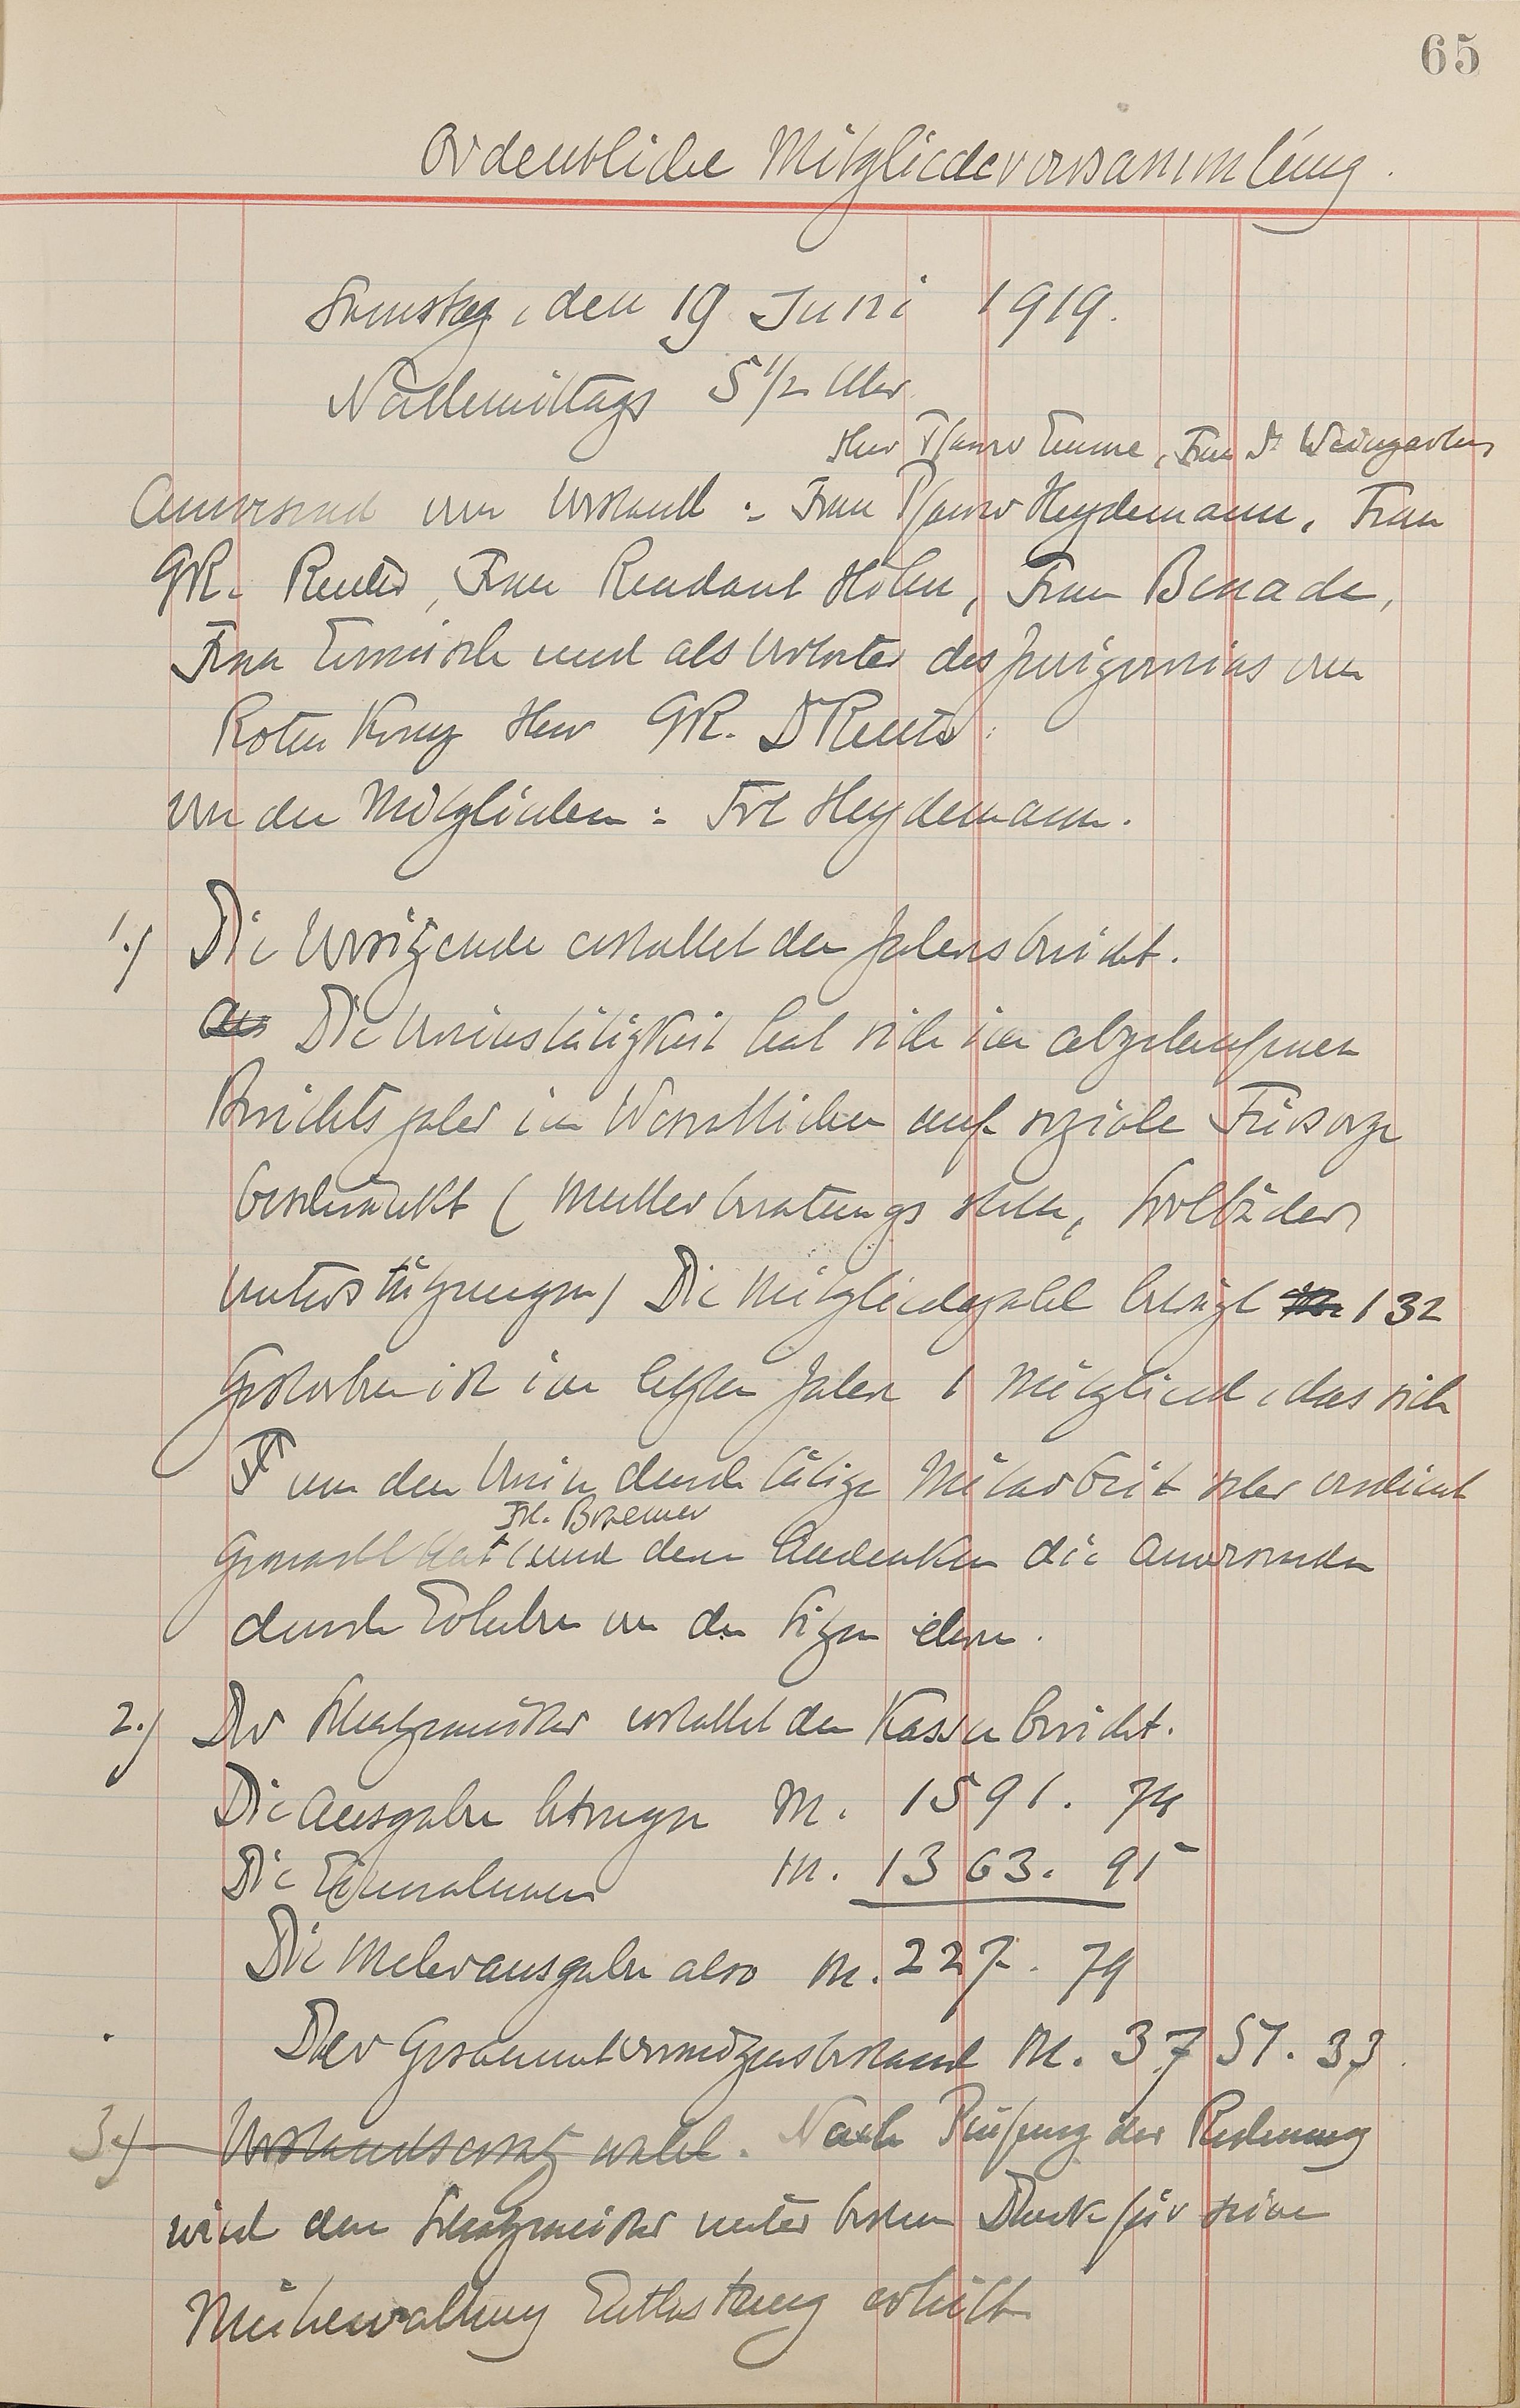 65
Ordentliche Mitgliederversammlung.
Samstag, den 19 Juni 1919.
Nachmittags 5 1/2 Uhr
Herr Pfarrer Emme, Frau Dr Weingarten
Anwesend vom Vorstand :- Frau Pfarrer Heydemann, Frau
GR. Reuter, Frau Rendant Höhn, Frau Benade,
Frau und als Vertreter des Zweigvereins vom
Roten Kreuz Herr GR. Dr Reuter.
Von den Mitgliedern : Frl Heydemann.
1.) Die Vorsitzende erstattet den Jahresbericht.
Die Vereinstätigkeit hat sich im abgelaufenen
Berichtsjahr im Wesentlichen auf soziale Fürsorge
beschränkt (Mutterberatungsstelle, Solbäder
Unterstützungen) Die Mitgliederzahl beträgt 132
Gestorben ist im letzten Jahre 1 Mitglied, das sich
um den Verein durch tätige Mitarbeit sehr verdient
Frl. Braemer
gemacht hat (und dem Andenken die Anwesenden
durch Erheben von den Sitzen ehren.
2.) Der Schatzmeister erstattet den Kassenbericht.
Die Ausgaben betragen M. 1591. 74
Die Einnahmen M. 1363. 95
Die Mehrausgaben also M. 227. 79
Der Gesammtvermögensbestand M. 3757. 33.
3.) Vorstandsersatzwahl. Nach Prüfung der Rechnung
wird dem Schatzmeister unter bestem Dank für seine
Mühewaltung Entlastung erteilt